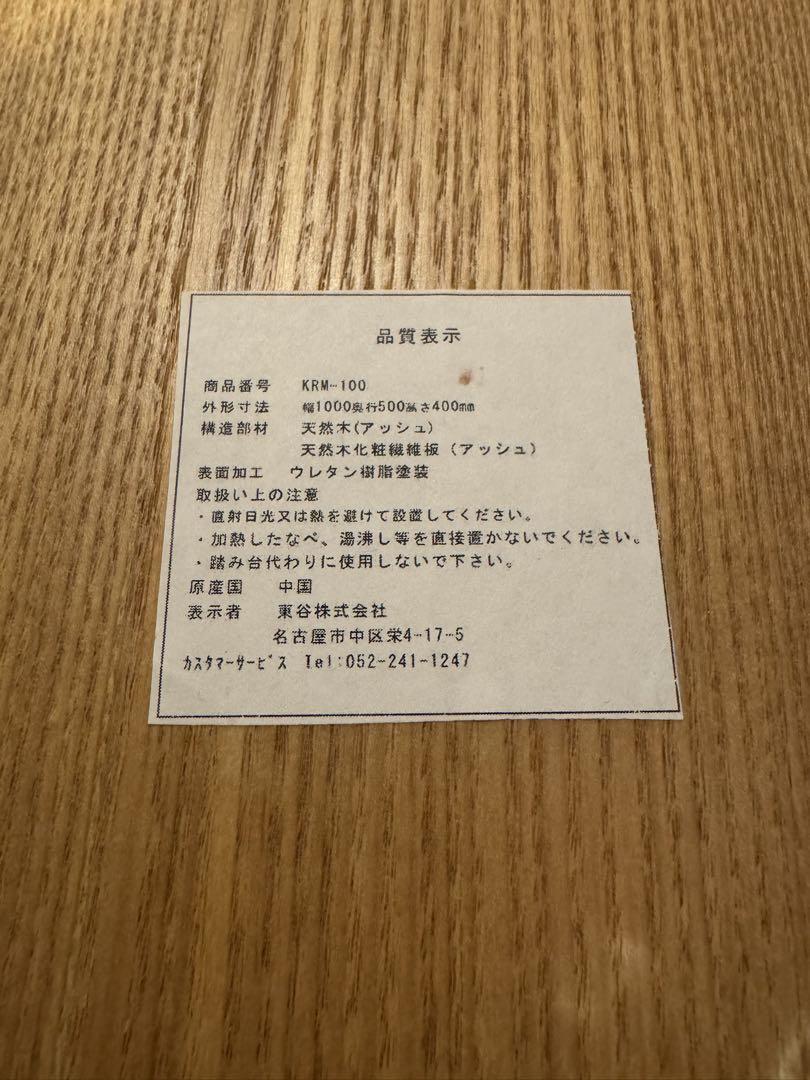 品質表示
商品番号 KRM-100
外形寸法 幅1000奥行500高さ400mm
構造部材 天然木(アッシュ)
天然木化粧繊維板(アッシュ)
表面加工 ウレタン樹脂塗装
取扱い上の注意
・直射日光又は熱を避けて設置してください。
・加熱したなべ、湯沸し等を直接置かないでください。
・踏み台代わりに使用しないで下さい。
原産国 中国
表示者 東谷株式会社
名古屋市中区栄4-17-5
ｶｽﾀﾏｰｻｰﾋﾞｽ Tel:052-241-1247